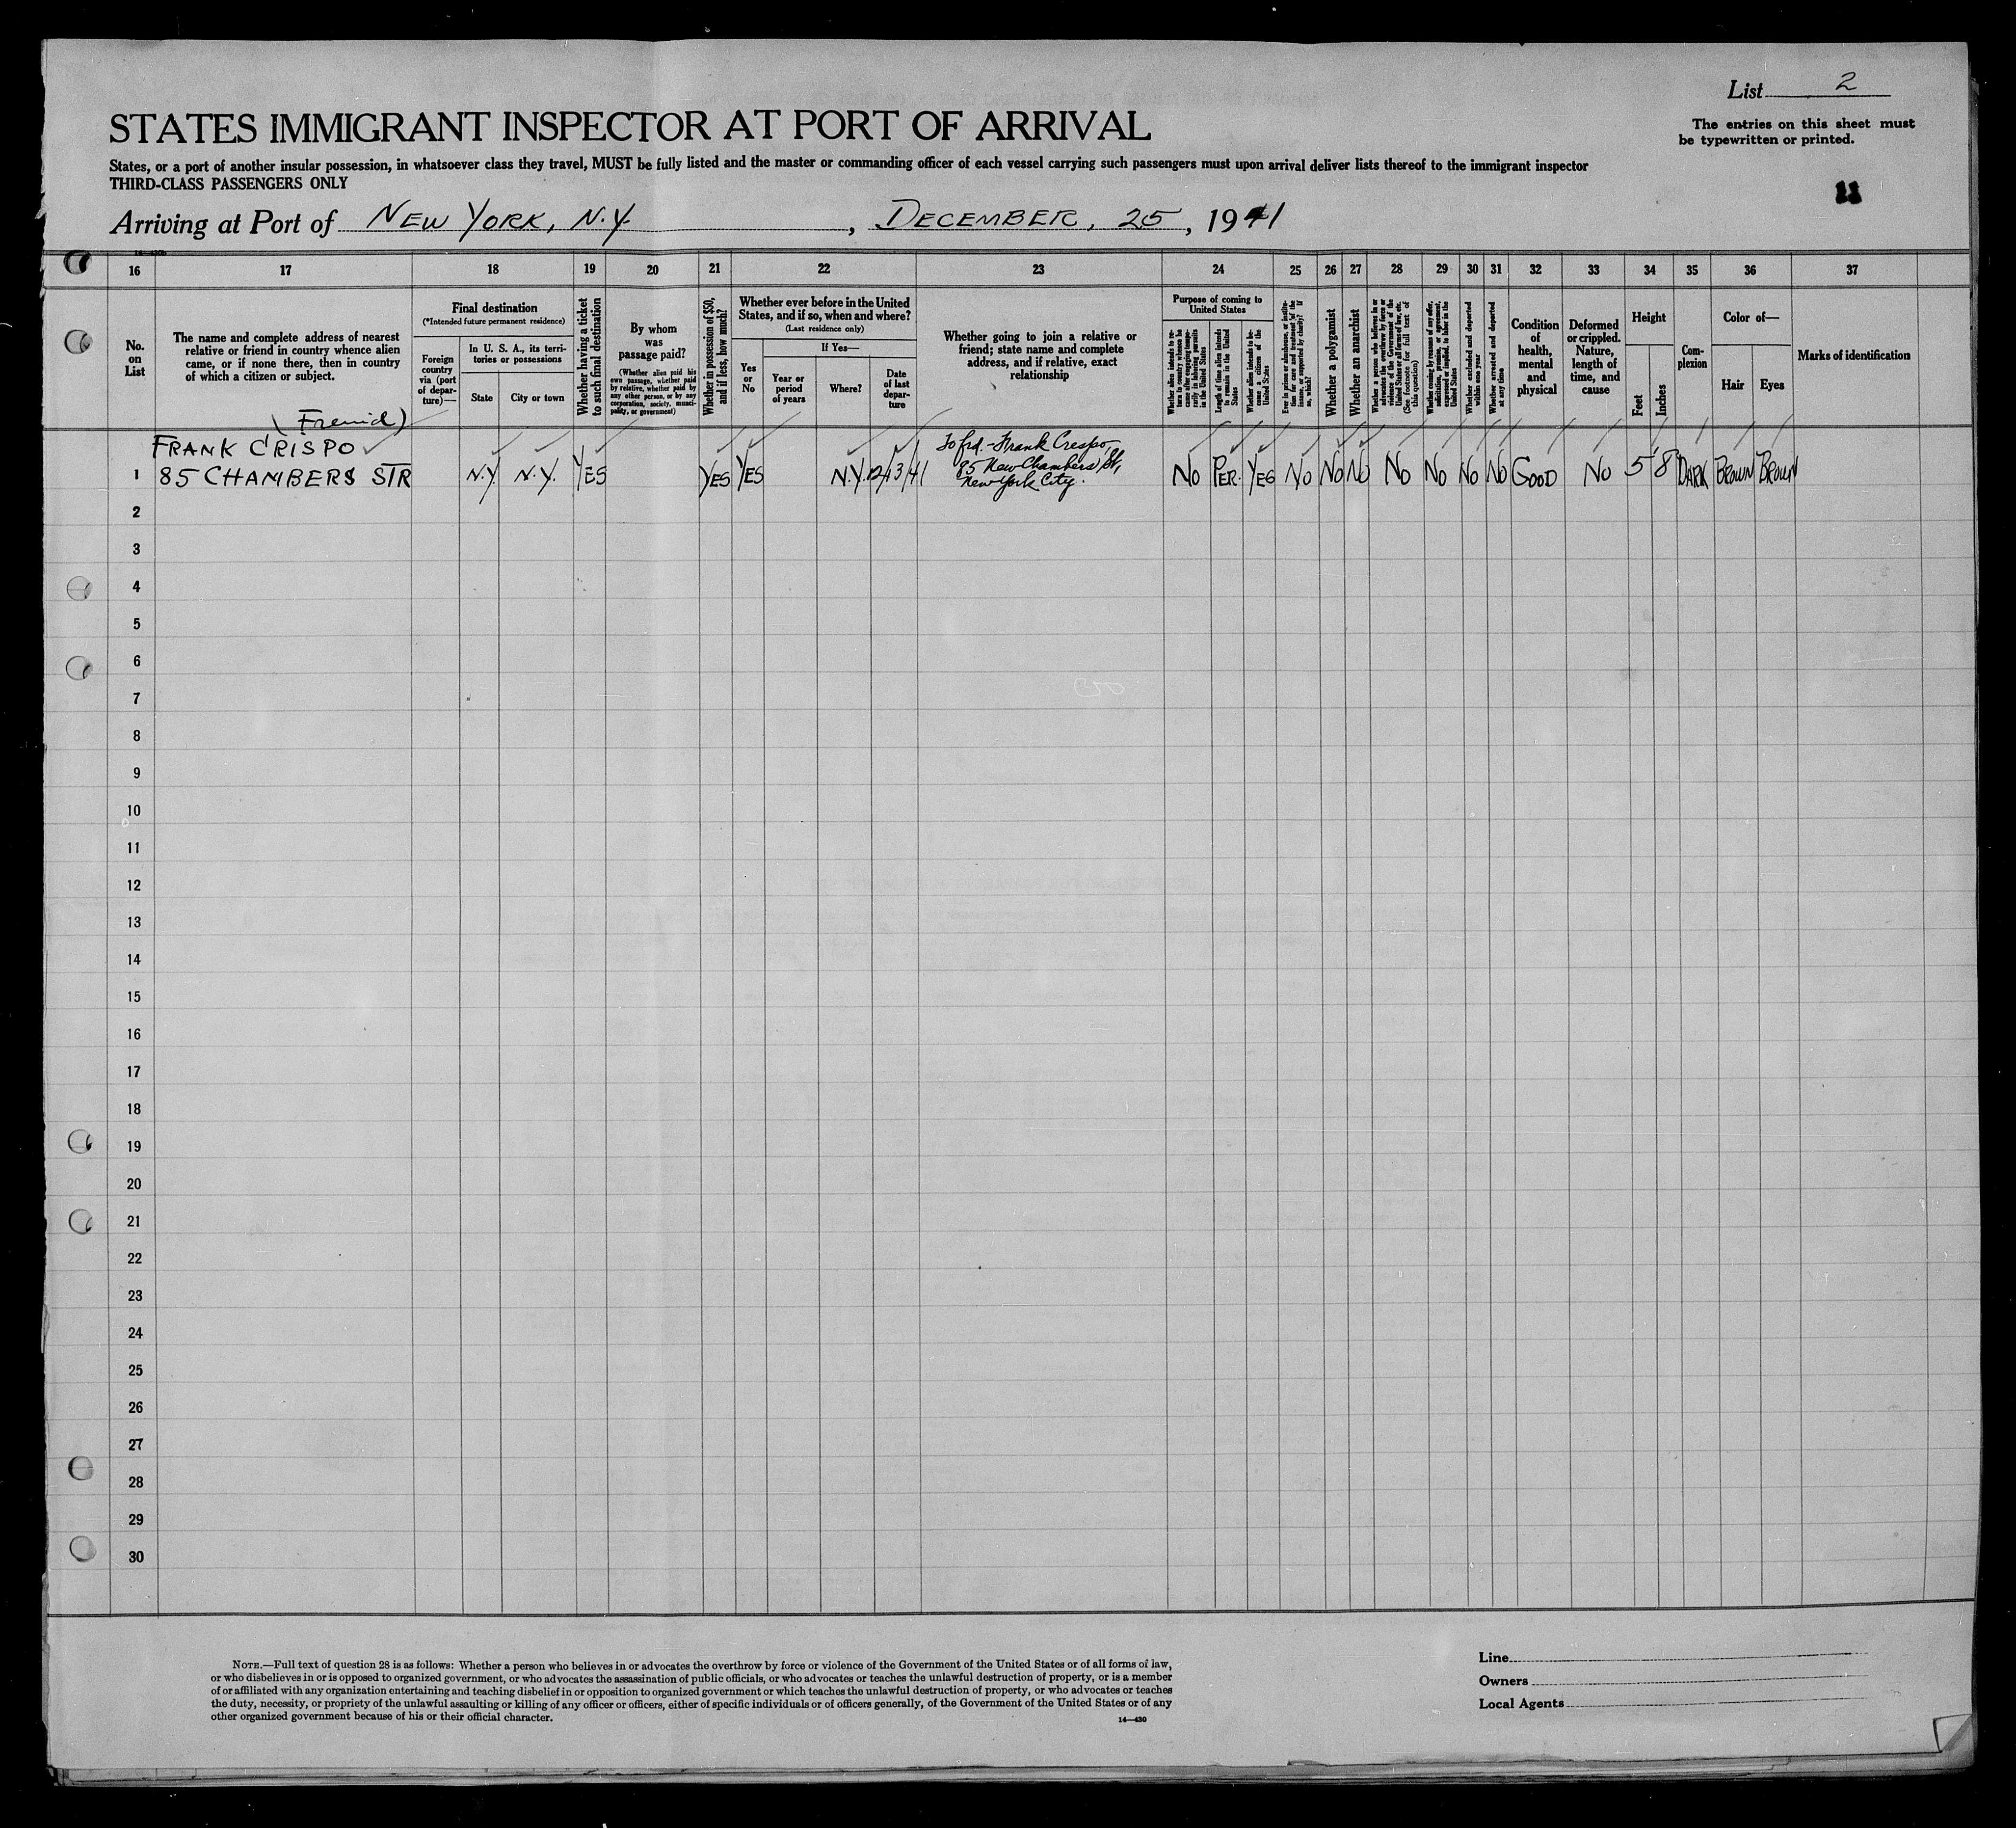 List 2
The entries on this sheet must
be typewritten or printed.
STATES IMMIGRANT INSPECTOR AT PORT OF ARRIVAL
States, or a port of another insular possession, in whatsoever class they travel, MUST be fully listed and the master or commanding officer of each vessel carrying such passengers must upon arrival deliver lists thereof to the immigrant inspector
THIRD-CLASS PASSENGERS ONLY
11
Arriving at Port of NEW YORK, N.Y. , DECEMBER, 25, 1941
16 17 18 19 20 21 22 23 24 25 26 27 28 29 30 31 32 33 34 35 36 37
No.
on
List
The name and complete address of nearest
relative or friend in country whence alien
came, or if none there, then in country
of which a citizen or subject.
Final destination
(*Intended future permanent residence)
Foreign
country
via (port
of depar-
ture)—
In U. S. A., its terri-
tories or possessions
State
City or town
Whether having a ticket
to such final destination
By whom
was
passage paid?
(Whether alien paid his
own passage, whether paid
by relative, whether paid by
any other person, or by any
corporation, society, munici-
pality, or government)
Whether in possession of $50,
and if less, how much?
Whether ever before in the United
States, and if so, when and where?
(Last residence only)
Yes
or
No
If Yes—
Year or
period
of years
Where?
Date
of last
depar-
ture
Whether going to join a relative or
friend; state name and complete
address, and if relative, exact
relationship
Purpose of coming to
United States
Length of time alien intends
to remain in the United
States
Whether alien intends to be-
come a citizen of the
United States
Whether a polygamist
Whether an anarchist
Whether excluded and deported
within one year
Whether arrested and deported
at any time
Condition
of
health,
mental
and
physical
Deformed
or crippled.
Nature,
length of
time, and
cause
Height
Feet
Inches
Com-
plexion
Color of—
Hair
Eyes
Marks of identification
(Freind)
FRANK CRISPO
1 85 CHAMBERS STR N.Y. N.Y. YES YES YES N.Y. 12/13/41
To frd.-Frank Crespo,
85 New Chambers St,
New York City.
NO PER. YES NO NO NO NO NO NO NO GOOD NO 5' 8" DARK BROWN BROWN
2
3
4
5
6
7
8
9
10
11
12
13
14
15
16
17
18
19
20
21
22
23
24
25
26
27
28
29
30
NOTE.—Full text of question 28 is as follows: Whether a person who believes in or advocates the overthrow by force or violence of the Government of the United States or of all forms of law,
or who disbelieves in or is opposed to organized government, or who advocates the assassination of public officials, or who advocates or teaches the unlawful destruction of property, or is a member
of or affiliated with any organization entertaining and teaching disbelief in or opposition to organized government or which teaches the unlawful destruction of property, or who advocates or teaches
the duty, necessity, or propriety of the unlawful assaulting or killing of any officer or officers, either of specific individuals or of officers generally, of the Government of the United States or of any
other organized government because of his or their official character.
14—430
Line
Owners
Local Agents